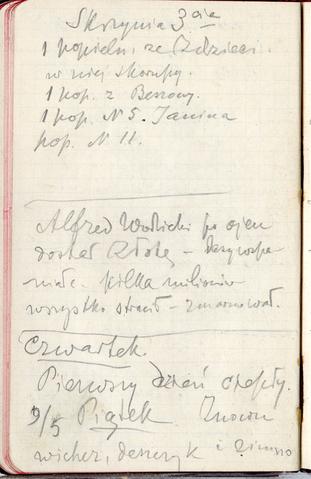 Skrzynia 3cia
1 popieln. ze Zdzieci.
w niej skorupy.
1 pop. z Beszowy.
1 pop. N 5. Janina
pop. N 11.
Alfred Wodzicki po ojcu
dostał Złotę –
kilka milionów
wszystko stracił – zmarnował.
Czwartek.
Pierwszy dzień ciepły.
9/5 Piątek. Znowu
wicher, deszczyk i zimno